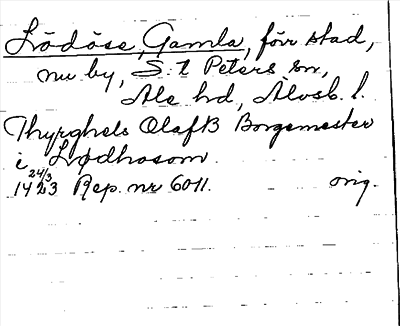 Lödöse, Gamla, förr stad,
nu by, S:t Peters sn,
Ale hd, Älvsb. l.
Thyrghels Olaff B Borgemester
i Lødhosom.
24/3
1423 Rep. nr 6011. orig.